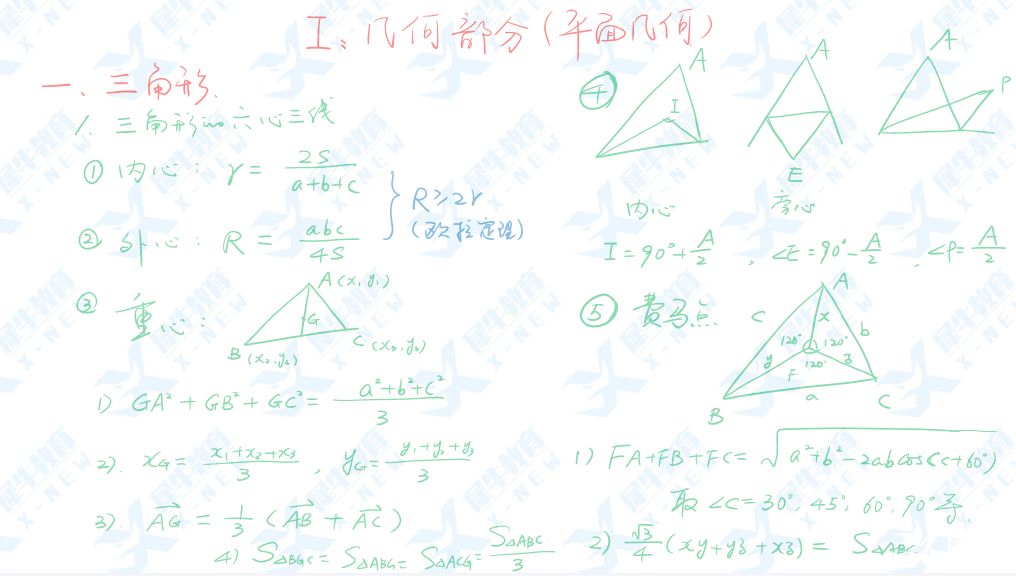 I、几何部分(平面几何)
一、三角形.
1、三角形的六心三线
① 内心: r = 2S/(a+b+c)
② 外心: R = abc/4S
} R≥2r
(欧拉定理)
③ 重心:
A(x₁,y₁)
G
B(x₂,y₂)
C(x₃,y₃)
1) GA²+GB²+GC² = (a²+b²+c²)/3
2). x_G = (x₁+x₂+x₃)/3 , y_G = (y₁+y₂+y₃)/3
3). →AG = 1/3 (→AB + →AC)
4) S△BGC = S△ABG = S△ACG = S△ABC/3
④
A
I
A
E
A
P
内心
旁心
I = 90°+A/2 , ∠E = 90°-A/2 , ∠P = A/2
⑤ 费马点
A
c
x
b
120° 120°
y
120°
z
F
B
a
C
1) FA+FB+FC = √(a²+b²-2abcos(C+60°))
取 ∠C=30°, 45°, 60°, 90°等.
2) √3/4 (xy+yz+xz) = S△ABC
犀牛教育
X-NEW